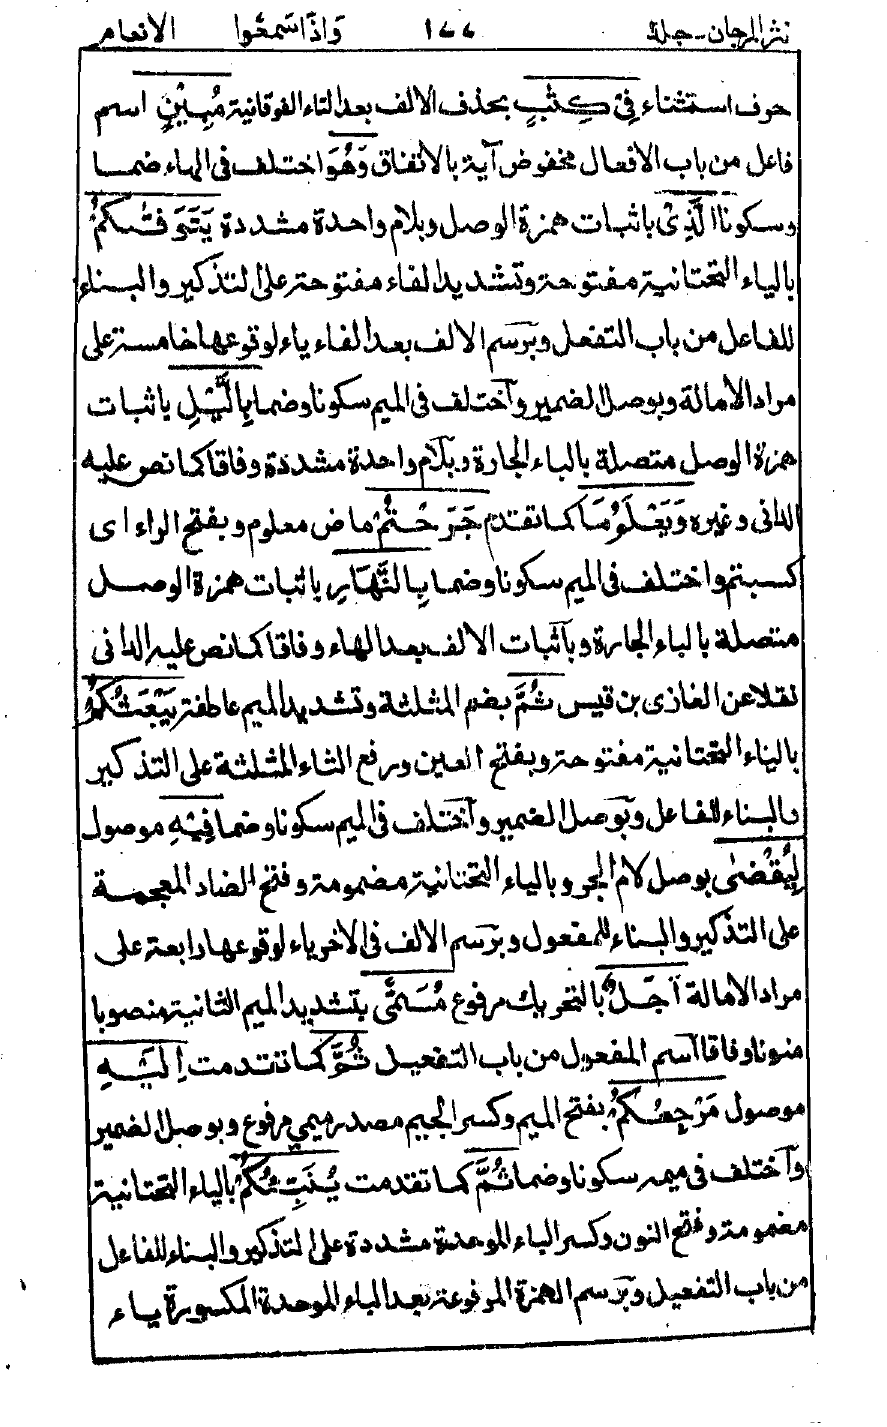 نثر المرجان - جلد ١٧٧ وَاِذَا سَمِعُوْا الانعام
حرف استثناء فِيْ كِتٰبٍ بحذف الالف بعد التاء الفوقانية مُبِيْنٍ اسم
فاعل من باب الافعال مخفوض آية بالاتفاق وَهُوَ اختلف في الهاء ضما
وسكونا الَّذِيْ باثبات همزة الوصل وبلام واحدة مشددة يَتَوَفّٰىكُمْ
بالياء التحتانية مفتوحة وتشديد الفاء مفتوحة على التذكير والبناء
للفاعل من باب التفعل وبرسم الالف بعد الفاء ياء لوقوعها خامسة على
مراد الامالة وبوصل الضمير واختلف في الميم سكونا وضما بِالَّيْلِ باثبات
همزة الوصل متصلة بالباء الجارة وبلام واحدة مشددة وفاقا كما نص عليه
الدانى وغيره وَيَعْلَمُ مَا كما تقدم جَرَحْتُمْ ماض معلوم وبفتح الراء اى
كسبتم واختلف في الميم سكونا وضما بِالنَّهَارِ باثبات همزة الوصل
متصلة بالباء الجارة وباثبات الالف بعد الهاء وفاقا كما نص عليه الدانى
نقلا عن الغازى بن قيس ثُمَّ بضم المثلثة وتشديد الميم عاطفة يَبْعَثُكُمْ
بالياء التحتانية مفتوحة وبفتح العين ورفع الثاء المثلثة على التذكير
والبناء للفاعل وبوصل الضمير واختلف في الميم سكونا وضما فِيْهِ موصول
لِيُقْضٰى بوصل لام الجر وبالياء التحتانية مضمومة وفتح الضاد المعجمة
على التذكير والبناء للمفعول وبرسم الالف في الآخر ياء لوقوعها رابعة على
مراد الامالة اَجَلٌ بالتحريك مرفوع مُسَمًّى بتشديد الميم الثانية منصوبا
منونا وفاقا اسم المفعول من باب التفعيل ثُمَّ كما تقدمت اِلَيْهِ
موصول مَرْجِعُكُمْ بفتح الميم وكسر الجيم مصدر ميمي مرفوع وبوصل الضمير
واختلف في ميمه سكونا وضما ثُمَّ كما تقدمت يُنَبِّئُكُمْ بالياء التحتانية
مضمومة وفتح النون وكسر الباء الموحدة مشددة على التذكير والبناء للفاعل
من باب التفعيل وبرسم الهمزة المرفوعة بعد الباء الموحدة المكسورة ياء